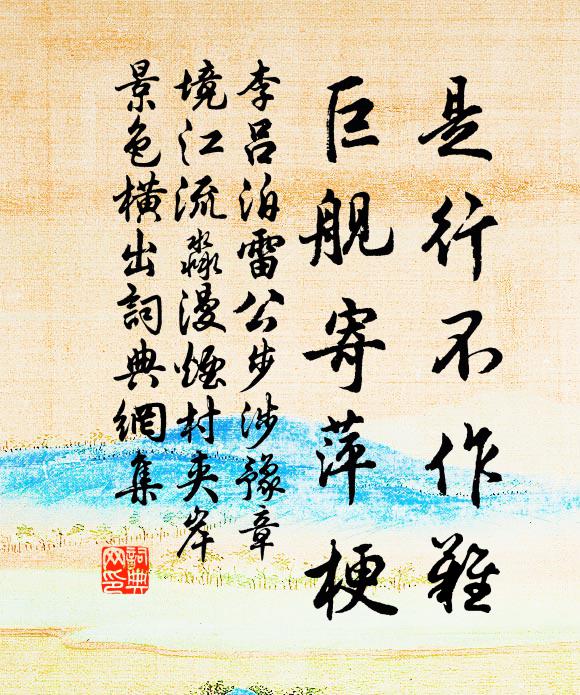 是行不作難
巨舰寄萍梗
李呂泊雷公步涉豫章
境江流淼漫煙村夾岸
景色橫出詞典網集
詞典网印